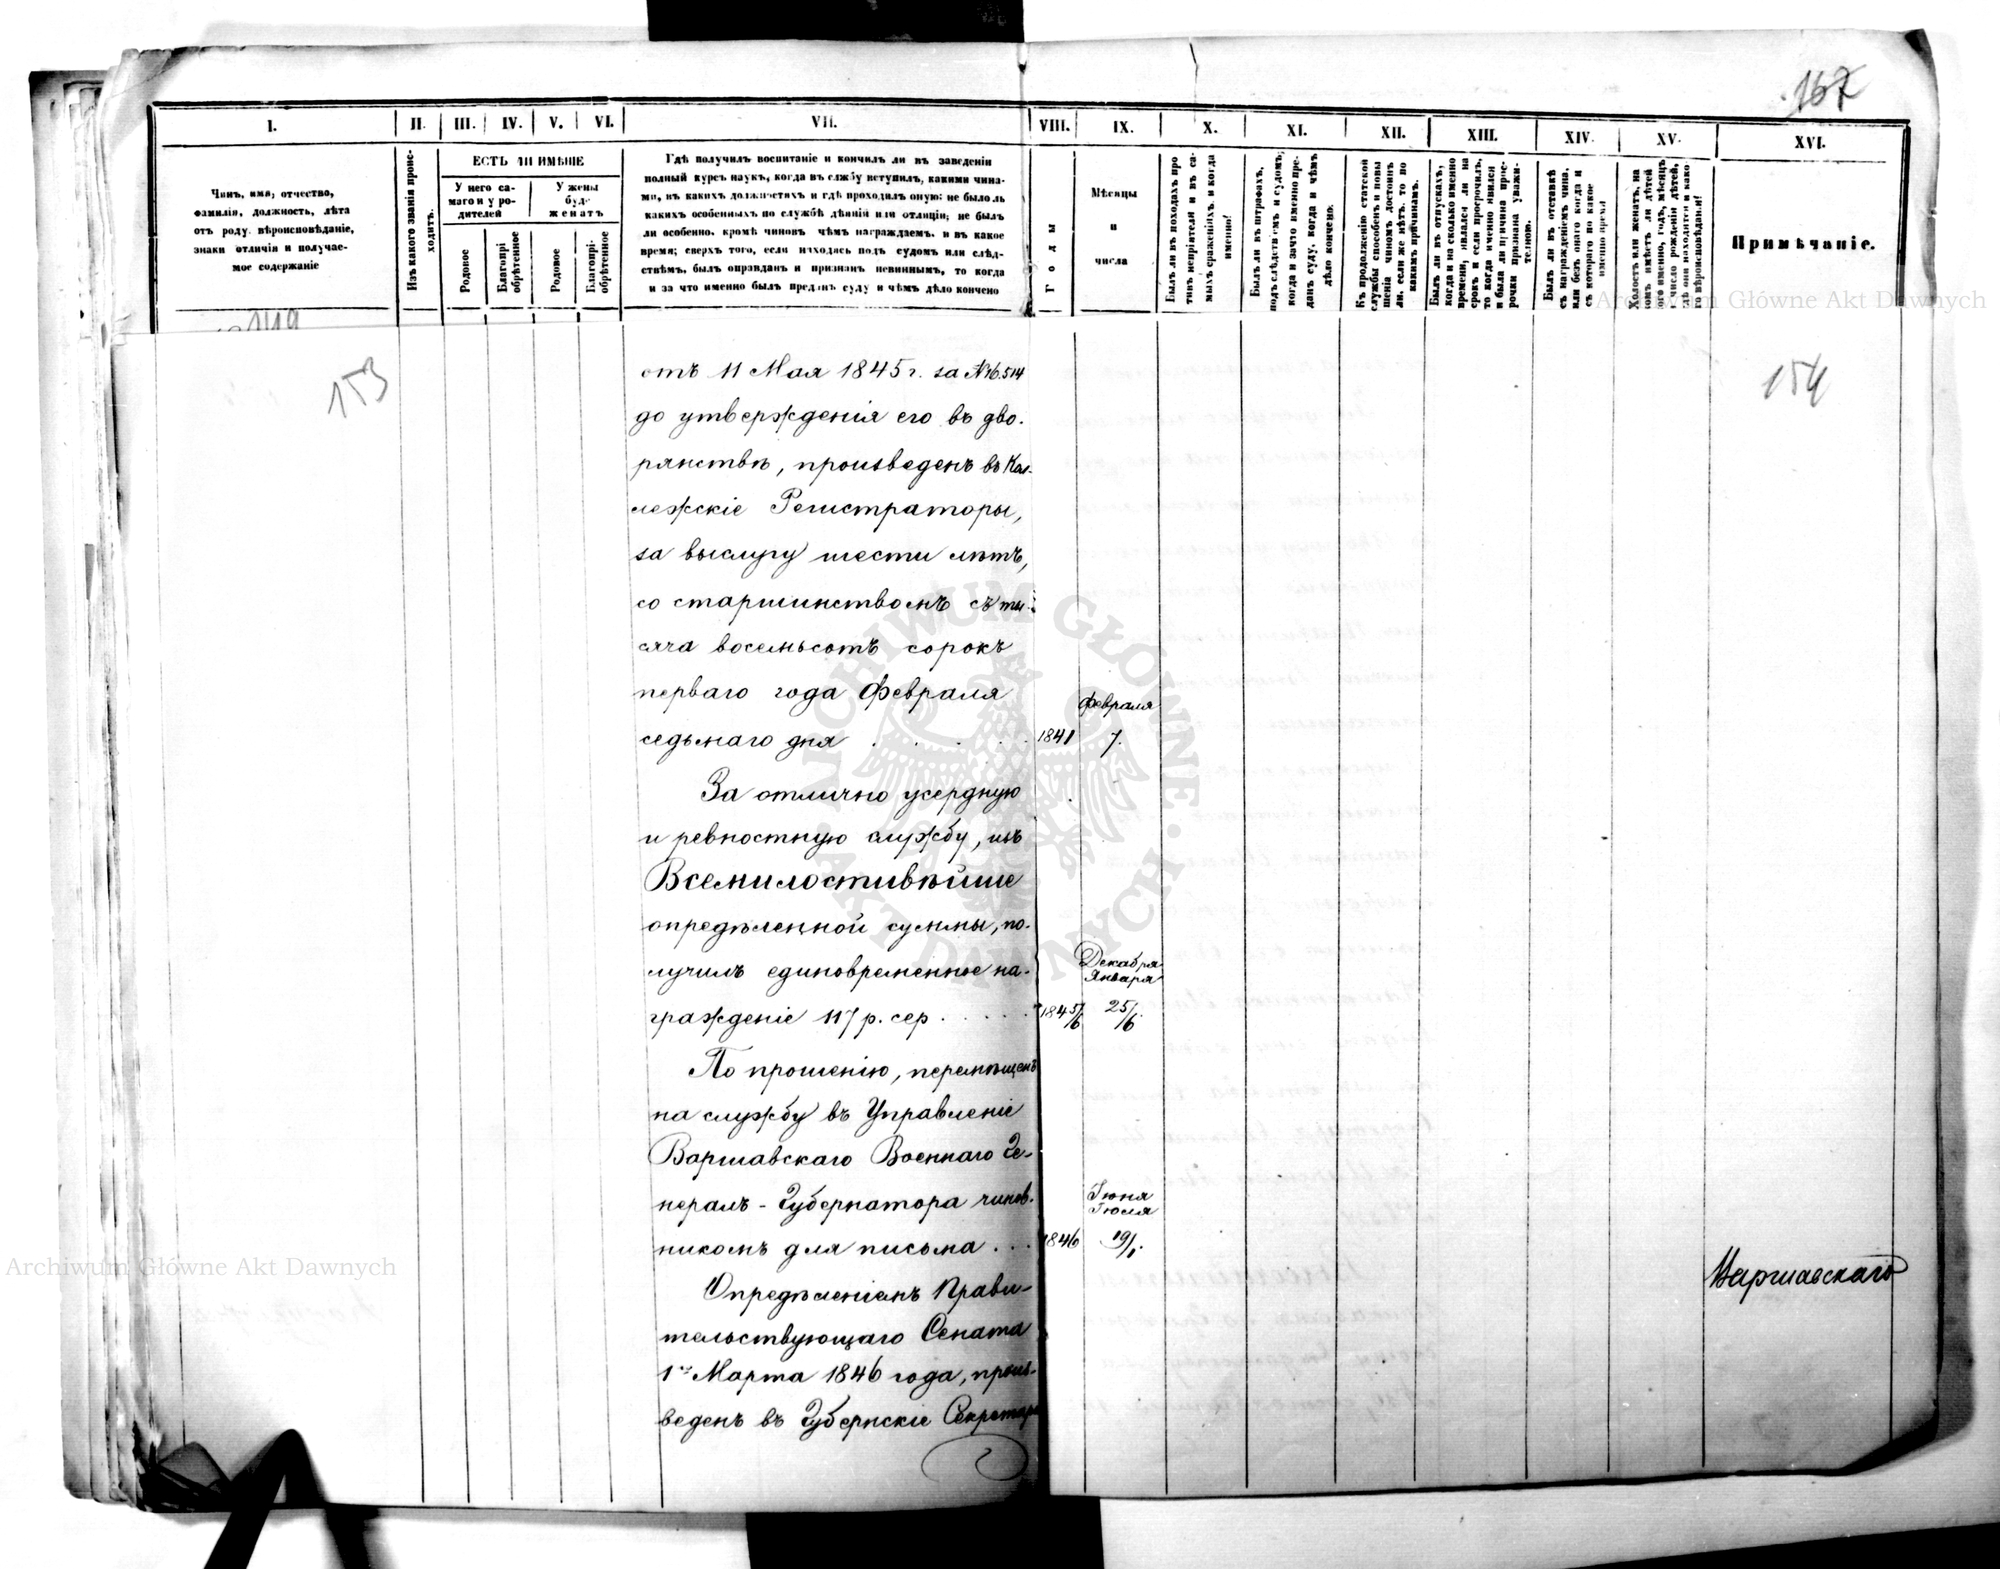 167
I.
II.
III.
IV.
V.
VI.
VII.
VIII.
IX.
X.
XI.
XII.
XIII.
XIV.
XV.
XVI.
Чинъ, имя, отчество,
фамилія, должность, лѣта
отъ роду, вѣроисповѣданіе,
знаки отличія и получае-
мое содержаніе
Изъ какого званія проис-
ходитъ.
ЕСТЬ ЛИ ИМѢНІЕ
У него са-
маго и у ро-
дителей
У жены
буде
женатъ
Родовое
Благопрі-
обрѣтенное
Родовое
Благопрі-
обрѣтенное
Гдѣ получилъ воспитаніе и кончилъ ли въ заведеніи
полный курсъ наукъ, когда въ службу вступилъ, какими чина-
ми, въ какихъ должностяхъ и гдѣ проходилъ оную; не было ль
какихъ особенныхъ по службѣ дѣяній или отличій; не былъ
ли особенно, кромѣ чиновъ чѣмъ награждаемъ, и въ какое
время; сверхъ того, если находясь подъ судомъ или слѣд-
ствіемъ, былъ оправданъ и признанъ невиннымъ, то когда
и за что именно былъ преданъ суду и чѣмъ дѣло кончено
Годы
Мѣсяцы
и
числа
Былъ ли въ походахъ про
тивъ непріятеля и въ са-
мыхъ сраженіяхъ и когда
именно?
Былъ ли въ штрафахъ,
подъ слѣдствіемъ и судомъ;
когда и за что именно пре-
данъ суду, когда и чѣмъ
дѣло кончено.
Къ продолженію статской
службы способенъ и повы
шенія чиномъ достоинъ
ли, если же нѣтъ, то по
какимъ причинамъ.
Былъ ли въ отпускахъ,
когда и на сколько именно
времени; являлся ли на
срокъ и если просрочилъ,
то когда именно явился
и была ли причина прос-
рочки признана уважи-
тельною.
Былъ ли въ отставкѣ
съ награжденіемъ чина,
или безъ онаго когда и
съ котораго по какое
именно время
Холостъ или женатъ, на
комъ имѣетъ ли дѣтей
кого именно, годъ, мѣсяцъ
и число рожденія дѣтей,
гдѣ они находятся и како-
го вѣроисповѣданія?
Примѣчаніе.
Archiwum Główne Akt Dawnych
153
154
отъ 11 Мая 1845 г. за № 6.514
до утвержденія его въ дво-
рянствѣ, произведенъ въ Кол-
лежскіе Регистраторы,
за выслугу шести лѣтъ,
со старшинствомъ съ ты-
сяча восемьсотъ сорокъ
перваго года Февраля
Февраля
седьмаго дня . . . . .
1841
7.
За отлично усердную
и ревностную службу, изъ
Всемилостивѣйше
опредѣленной суммы, по-
лучилъ единовременное на-
Декабря
Января
гражденіе 117 р. сер . . . . .
1845/6
25/6.
По прошенію, перемѣщенъ
на службу въ Управленіе
Варшавскаго Военнаго Ге-
нералъ-Губернатора чинов-
Іюня
Іюля
никомъ для письма . . .
1846
19/1.
Варшавскаго
Archiwum Główne Akt Dawnych
Опредѣленіемъ Прави-
тельствующаго Сената
1го Марта 1846 года, произ-
веденъ въ Губернскіе Секретари
ARCHIWUM GŁÓWNE AKT DAWNYCH